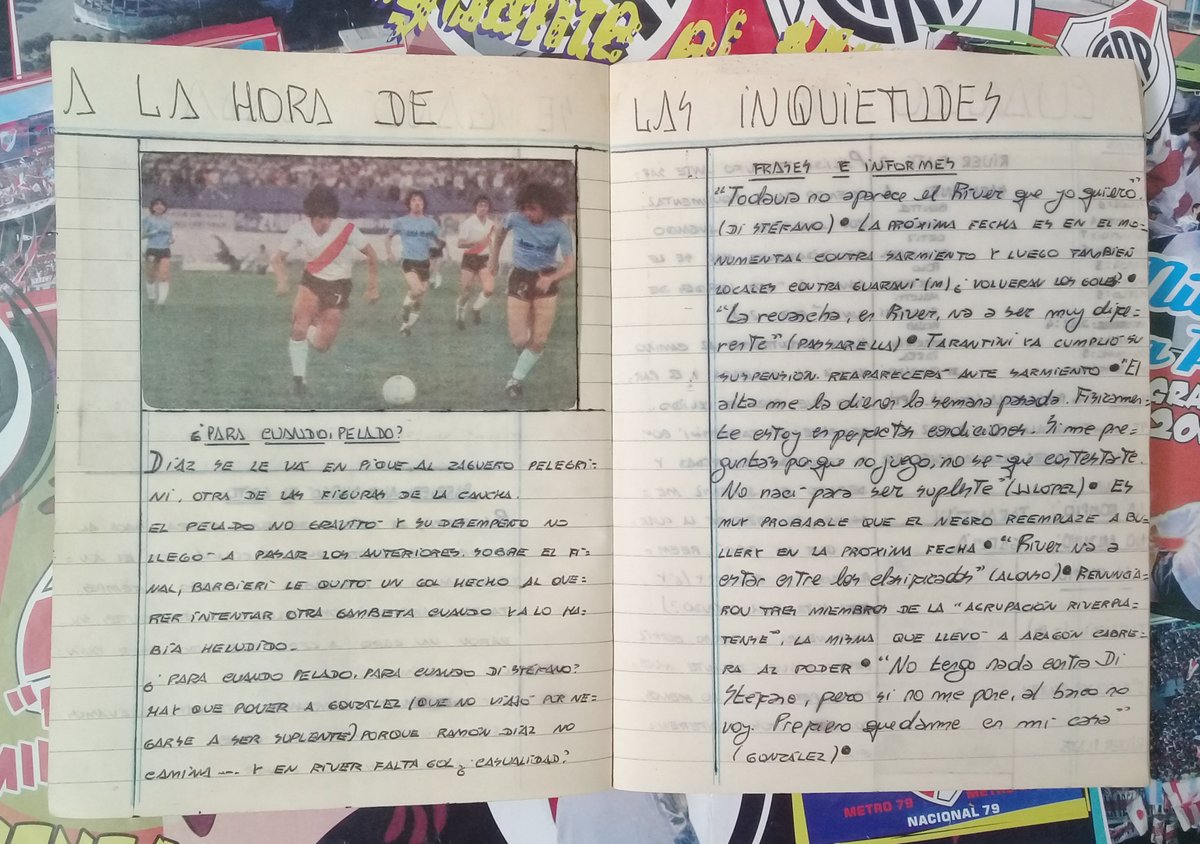 A LA HORA DE
¿PARA CUANDO, PELADO?
DÍAZ SE LE VA EN PIQUE AL ZAGUERO PELEGRI-
NI, OTRA DE LAS FIGURAS DE LA CANCHA.
EL PELADO NO GRAVITÓ Y SU DESEMPEÑO NO
LLEGÓ A PASAR LOS ANTERIORES. SOBRE EL FI-
NAL, BARBIERI LE QUITÓ UN GOL HECHO AL QUE-
RER INTENTAR OTRA GAMBETA CUANDO YA LO HA-
BÍA HELUDIDO.
¿PARA CUANDO PELADO, PARA CUANDO DI STÉFANO?
HAY QUE PONER A GONZÁLEZ (QUE NO VIAJÓ POR NE-
GARSE A SER SUPLENTE) PORQUE RAMÓN DÍAZ NO
CAMINA.... Y EN RIVER FALTA GOL ¿CASUALIDAD?
LAS INQUIETUDES
FRASES E INFORMES
"Todavía no aparece el River que yo quiero"
(DI STÉFANO) • LA PRÓXIMA FECHA ES EN EL MO-
NUMENTAL CONTRA SARMIENTO Y LUEGO TAMBIÉN
LOCALES CONTRA GUARANÍ (M) ¿VOLVERAN LOS GOLES? •
"La revancha, en River, va a ser muy dife-
rente" (PASSARELLA) • TARANTINI YA CUMPLIÓ SU
SUSPENSIÓN. REAPARECERÁ ANTE SARMIENTO • "El
alta me la dieron la semana pasada. Físicamen-
te estoy en perfectas condiciones. Si me pre-
guntas por que no juego, no se que contestarte.
No nací para ser suplente" (JJ LOPEZ) • ES
MUY PROBABLE QUE EL NEGRO REEMPLAZE A BU-
LLERI EN LA PRÓXIMA FECHA • "River va a
estar entre los clasificados" (ALONSO) • RENUNCIA-
RON TRES MIEMBROS DE LA "AGRUPACIÓN RIVERPLA-
TENSE", LA MISMA QUE LLEVÓ A ARAGÓN CABRE-
RA AL PODER • "No tengo nada contra Di
Stéfano, pero si no me pone, al banco no
voy. Prefiero quedarme en mi casa"
(GONZÁLEZ) •
METRO 79
NACIONAL 79